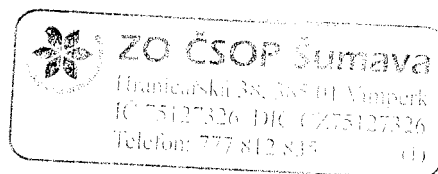 ZO ČSOP Šumava
Hraničářská 38, 385 01 Vimperk
IČ 75127326 DIČ CZ75127326
Telefon: 777 812 835 (1)